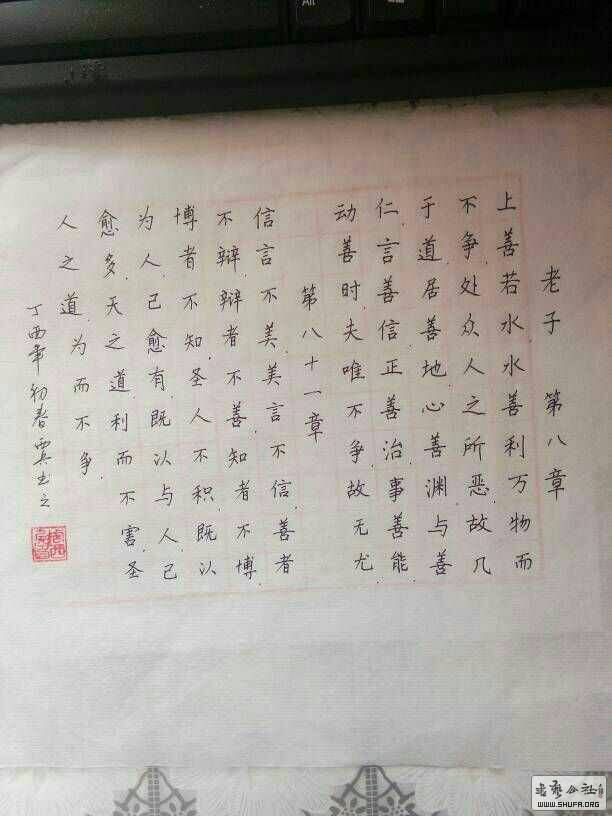 老子 第八章
上善若水水善利万物而
不争处众人之所恶故几
于道居善地心善渊与善
仁言善信正善治事善能
动善时夫唯不争故无尤
第八十一章
信言不美美言不信善者
不辩辩者不善知者不博
博者不知圣人不积既以
为人己愈有既以与人己
愈多天之道利而不害圣
人之道为而不争
丁酉年初春 书之
Alt
WWW.SHUFA.ORG